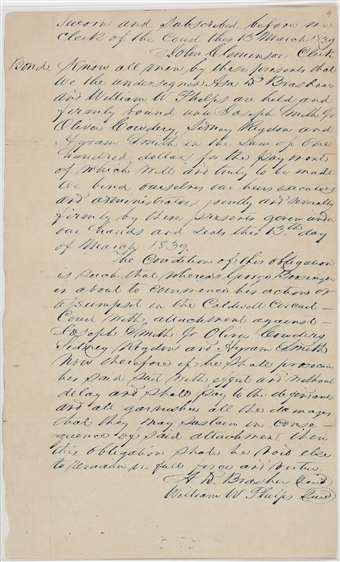 Sworn and Subscribed before me
Clerk of the Court this 13 March 1839
John Cleminson Clerk
Bond Know all men by these presents that
we the undersigned Asa D Brasher
and William W Phelps are held and
firmly bound unto Joseph Smith Jr
Oliver Cowdery, Sidney Rigdon and
Hyrum Smith in the Sum of One
hundred dollars for the payment
of which well and truly to be made
We bind ourselves our heirs executors
and administrators jointly and severally
firmly by these presents given under
our hands and seals this 13th day
of March 1839.
The Condition of this obligation
is such that whereas George
is about to commence his action of
assumpsit in the Caldwell Circuit
Court with attachment against
Joseph Smith Jr Oliver Cowdery
Sidney Rigdon and Hyrum Smith
Now therefore if he shall prosecute
his said suit with effect and without
delay and shall pay to the
and all garnishees all the damages
that they may sustain in conse-
quence of said attachment then
this obligation shall be void else
to remain in full force and virtue.
A D Brasher Seal
William W Phelps Seal